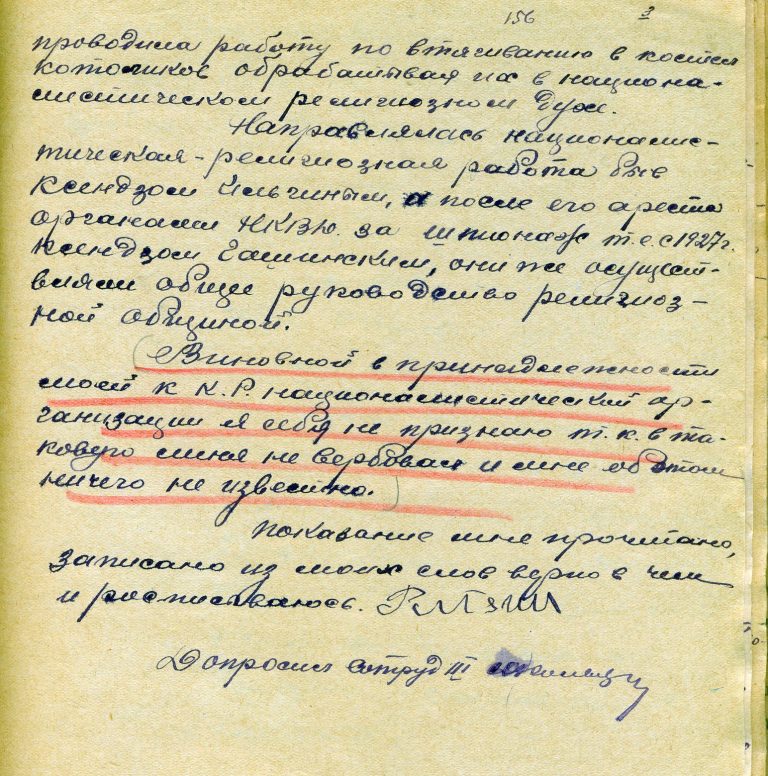 156 3
проводила работу по втягиванию в костел
католиков обрабатывая их в национа-
листическом религиозном духе.
Направлялась националис-
тическая-религиозная работа быв
ксендзом Ильчиным, а после его ареста
органами НКВД. за шпионаж т.е. с 1927г.
ксендзом они же осущест-
вляли общее руководство религиоз-
ной общиной.
Виновной в принадлежности
моей к К.Р. националистической ор-
ганизации я себя не признаю т.к. в та-
ковую меня не вербовал и мне об этом
ничего не известно.
Показание мне прочитано,
записано из моих слов верно в чем
и росписываюсь.
Допросил сотруд III